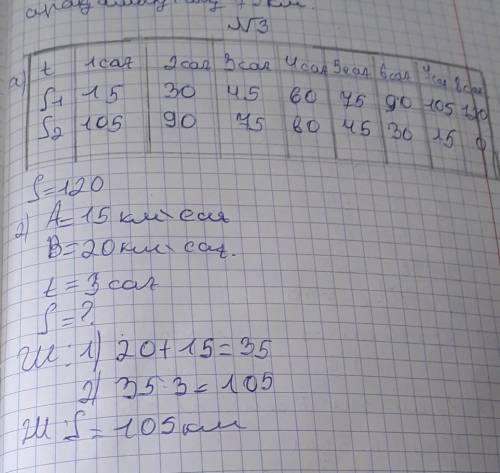 арақашықтығы 75км.
№3
а) t 1сағ 2сағ 3сағ 4сағ 5сағ 6сағ 7сағ 8сағ
S1 15 30 45 60 75 90 105 120
S2 105 90 75 60 45 30 15 0
S=120
2) A=15 км\сағ
B=20км\сағ.
t=3сағ
S=?
Ш: 1) 20+15=35
2) 35·3=105
Ш: S=105км